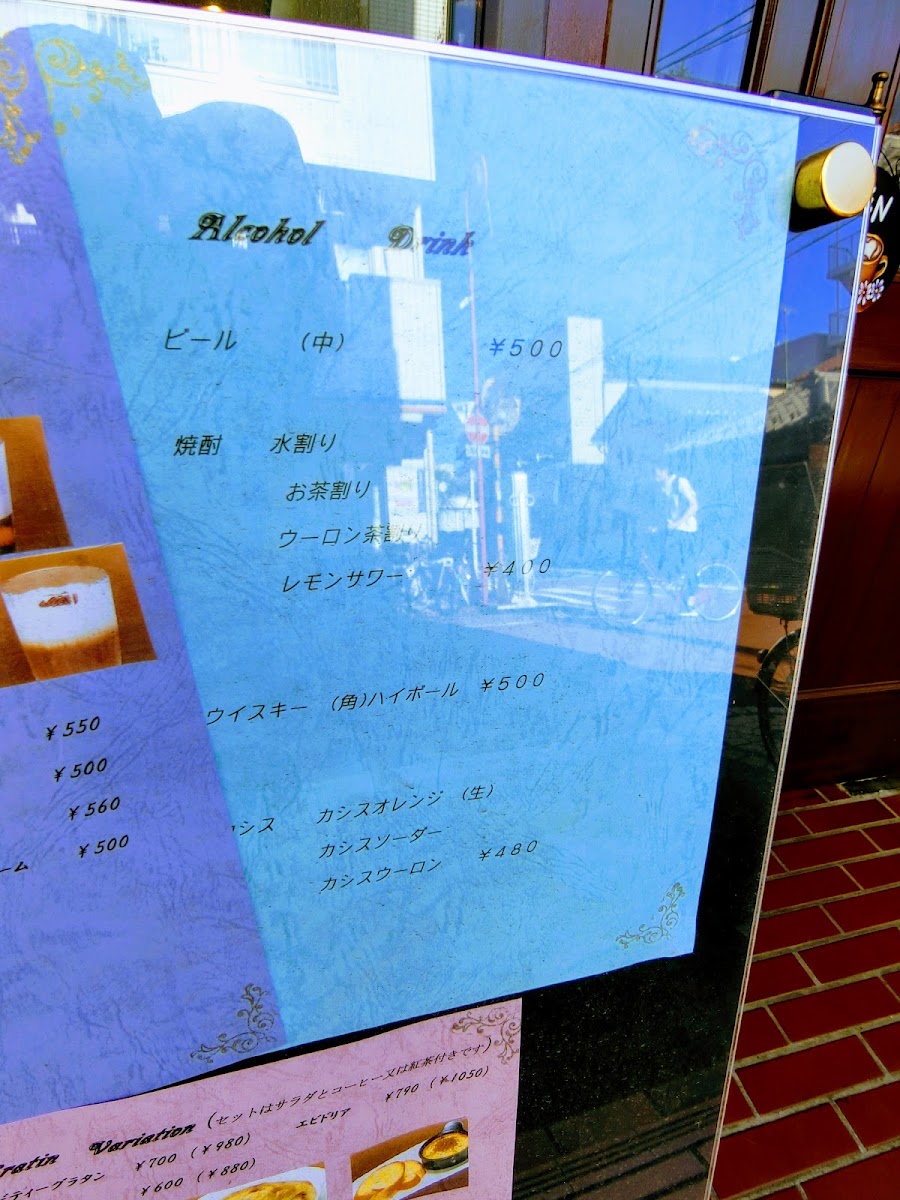 Alcohol Drink
ビール (中) ¥500
焼酎 水割り
お茶割り
ウーロン茶割り
レモンサワー ¥400
ウイスキー (角)ハイボール ¥500
シス カシスオレンジ (生)
カシスソーダー
カシスウーロン ¥480
¥550
¥500
¥560
ーム ¥500
Variation (セットはサラダとコーヒー又は紅茶付きです)
ティーグラタン ¥700 (¥980)
¥600 (¥880)
エビドリア ¥790 (¥1050)